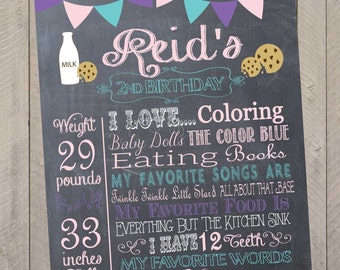 Reid's
MILK
2ND BIRTHDAY
Weight
29
pounds
33
inches
I LOVE.... Coloring
Baby Dolls THE COLOR BLUE
Eating Books
MY FAVORITE SONGS ARE
Twinkle Twinkle Little Star & ALL ABOUT THAT BASE
MY FAVORITE FOOD IS
EVERYTHING BUT THE KITCHEN SINK
I HAVE 12 TEETH
MY FAVORITE WORDS